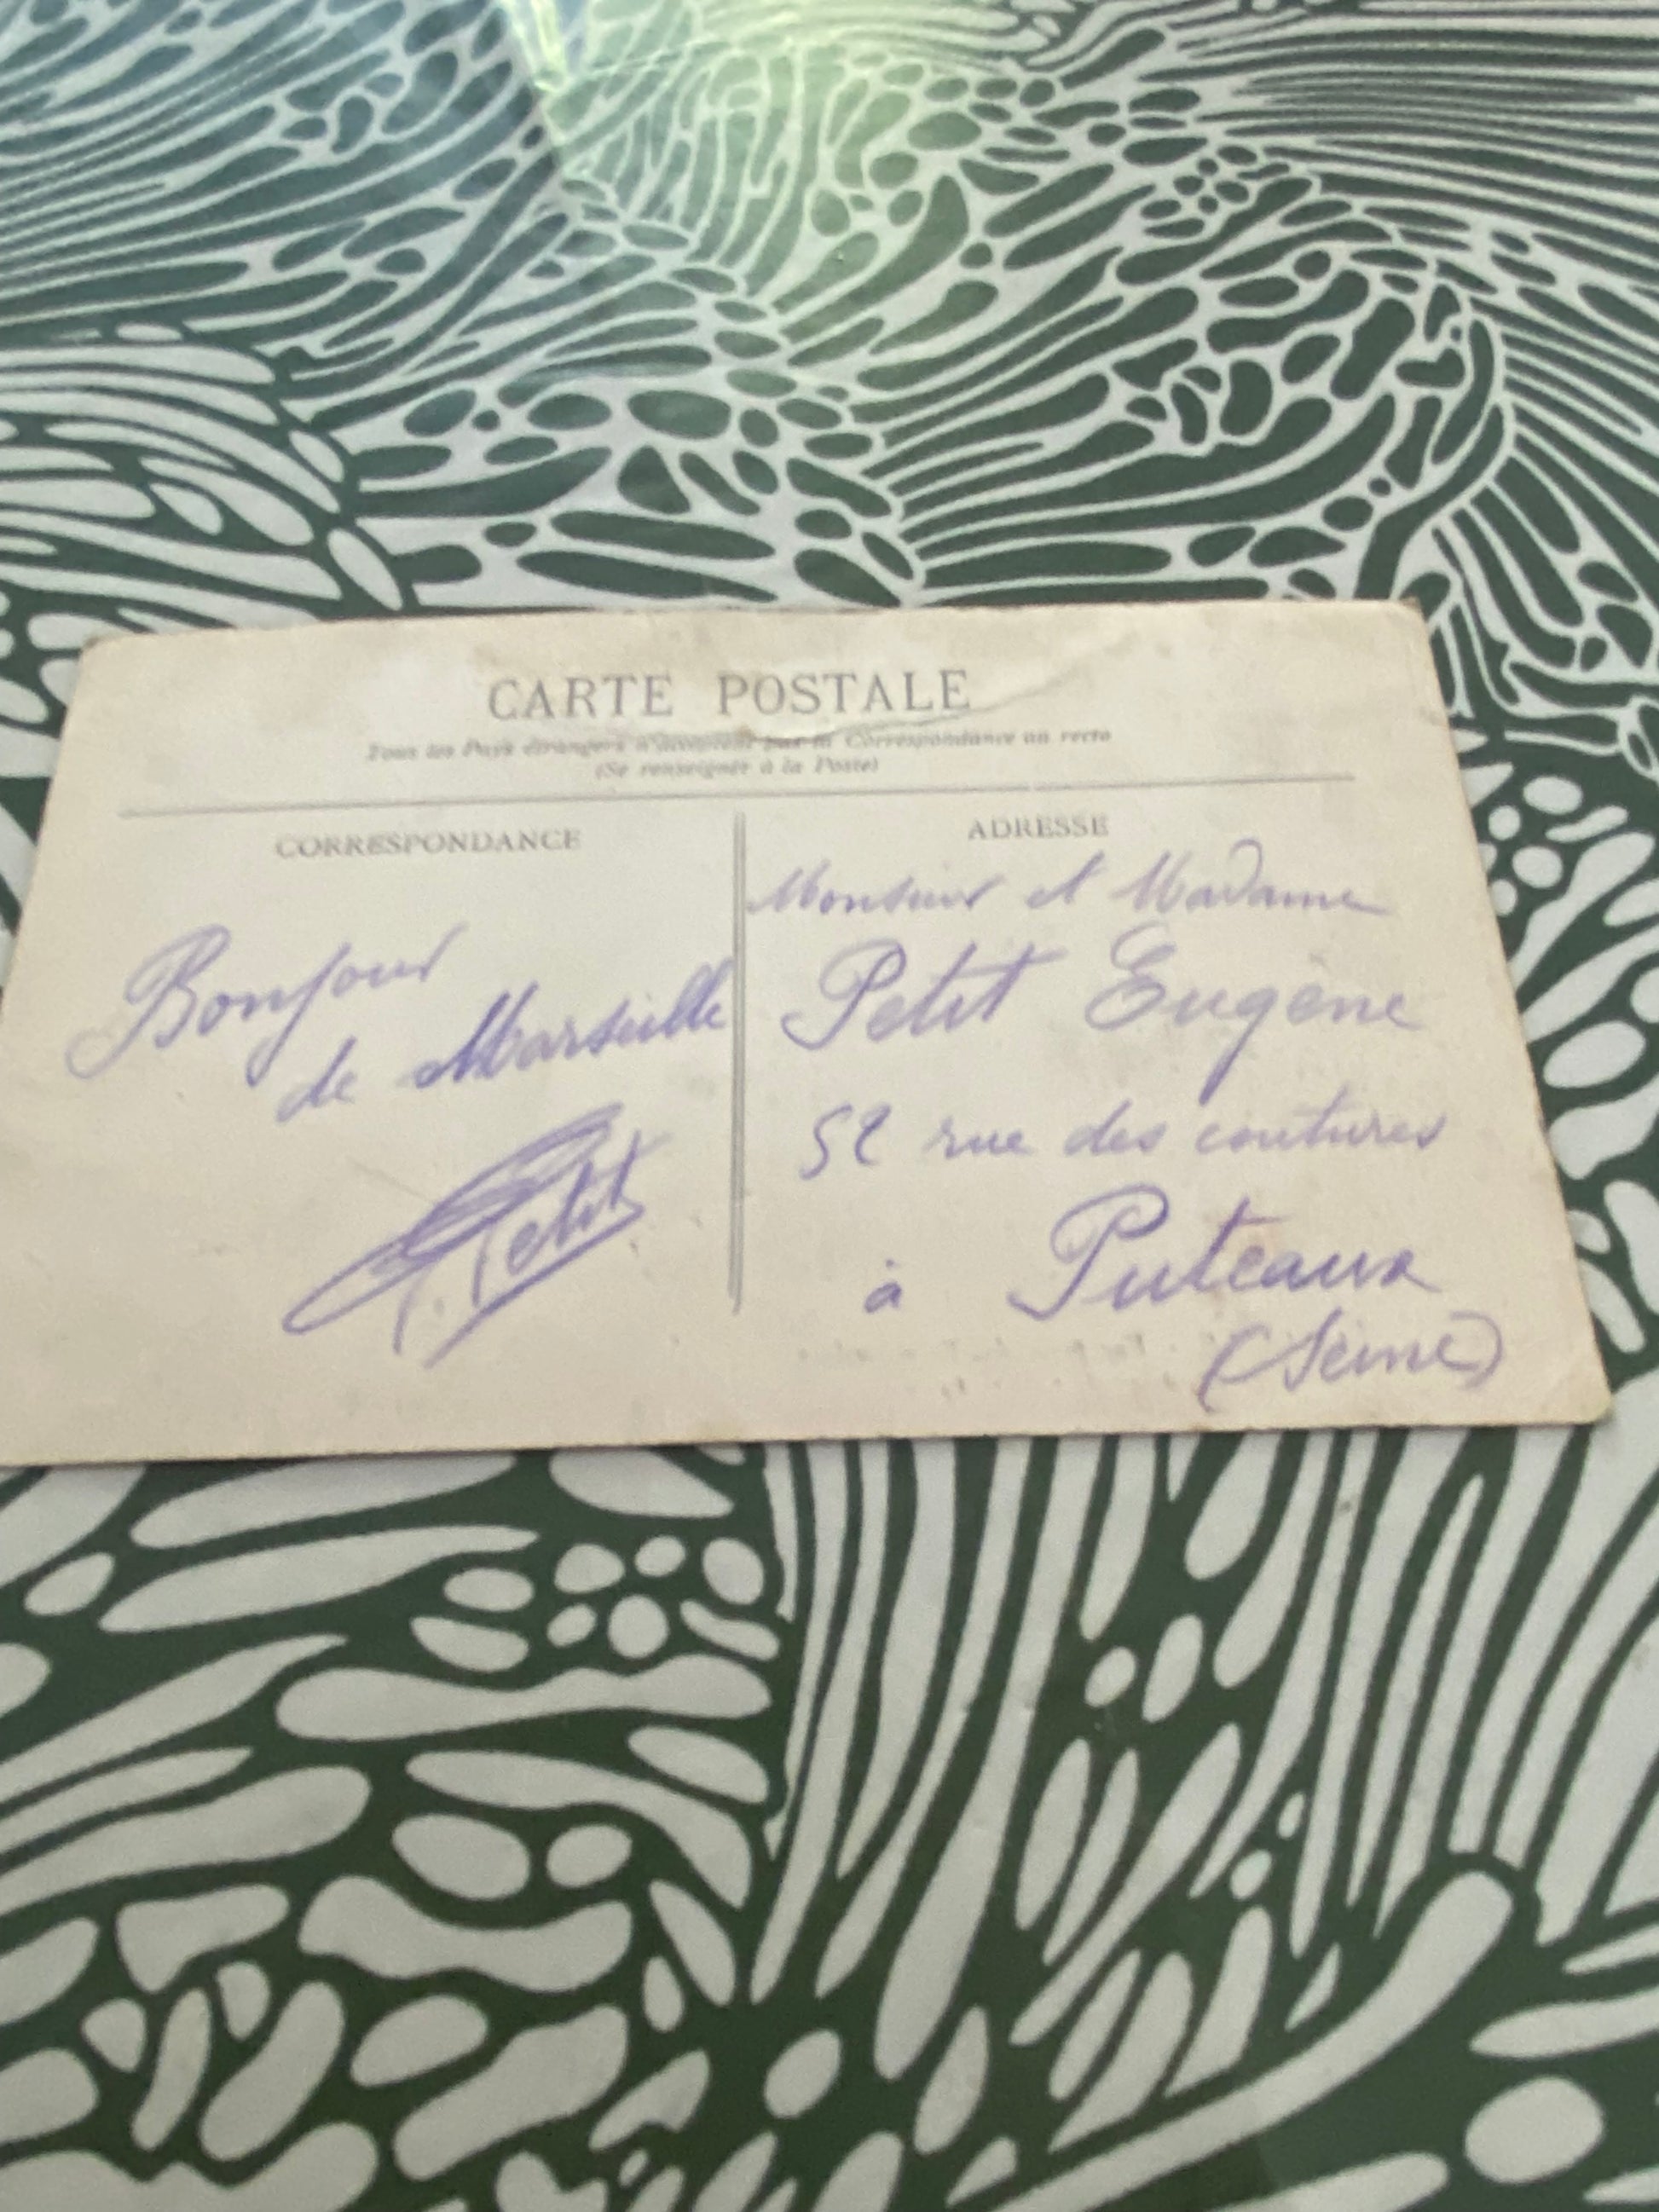 CARTE POSTALE
Tous les Pays étrangers n'acceptent pas la Correspondance au recto
(Se renseigner à la Poste)
CORRESPONDANCE
Bonjour
de Marseille
Petit
ADRESSE
Monsieur et Madame
Petit Eugène
52 rue des coutures
à Puteaux
(Seine)